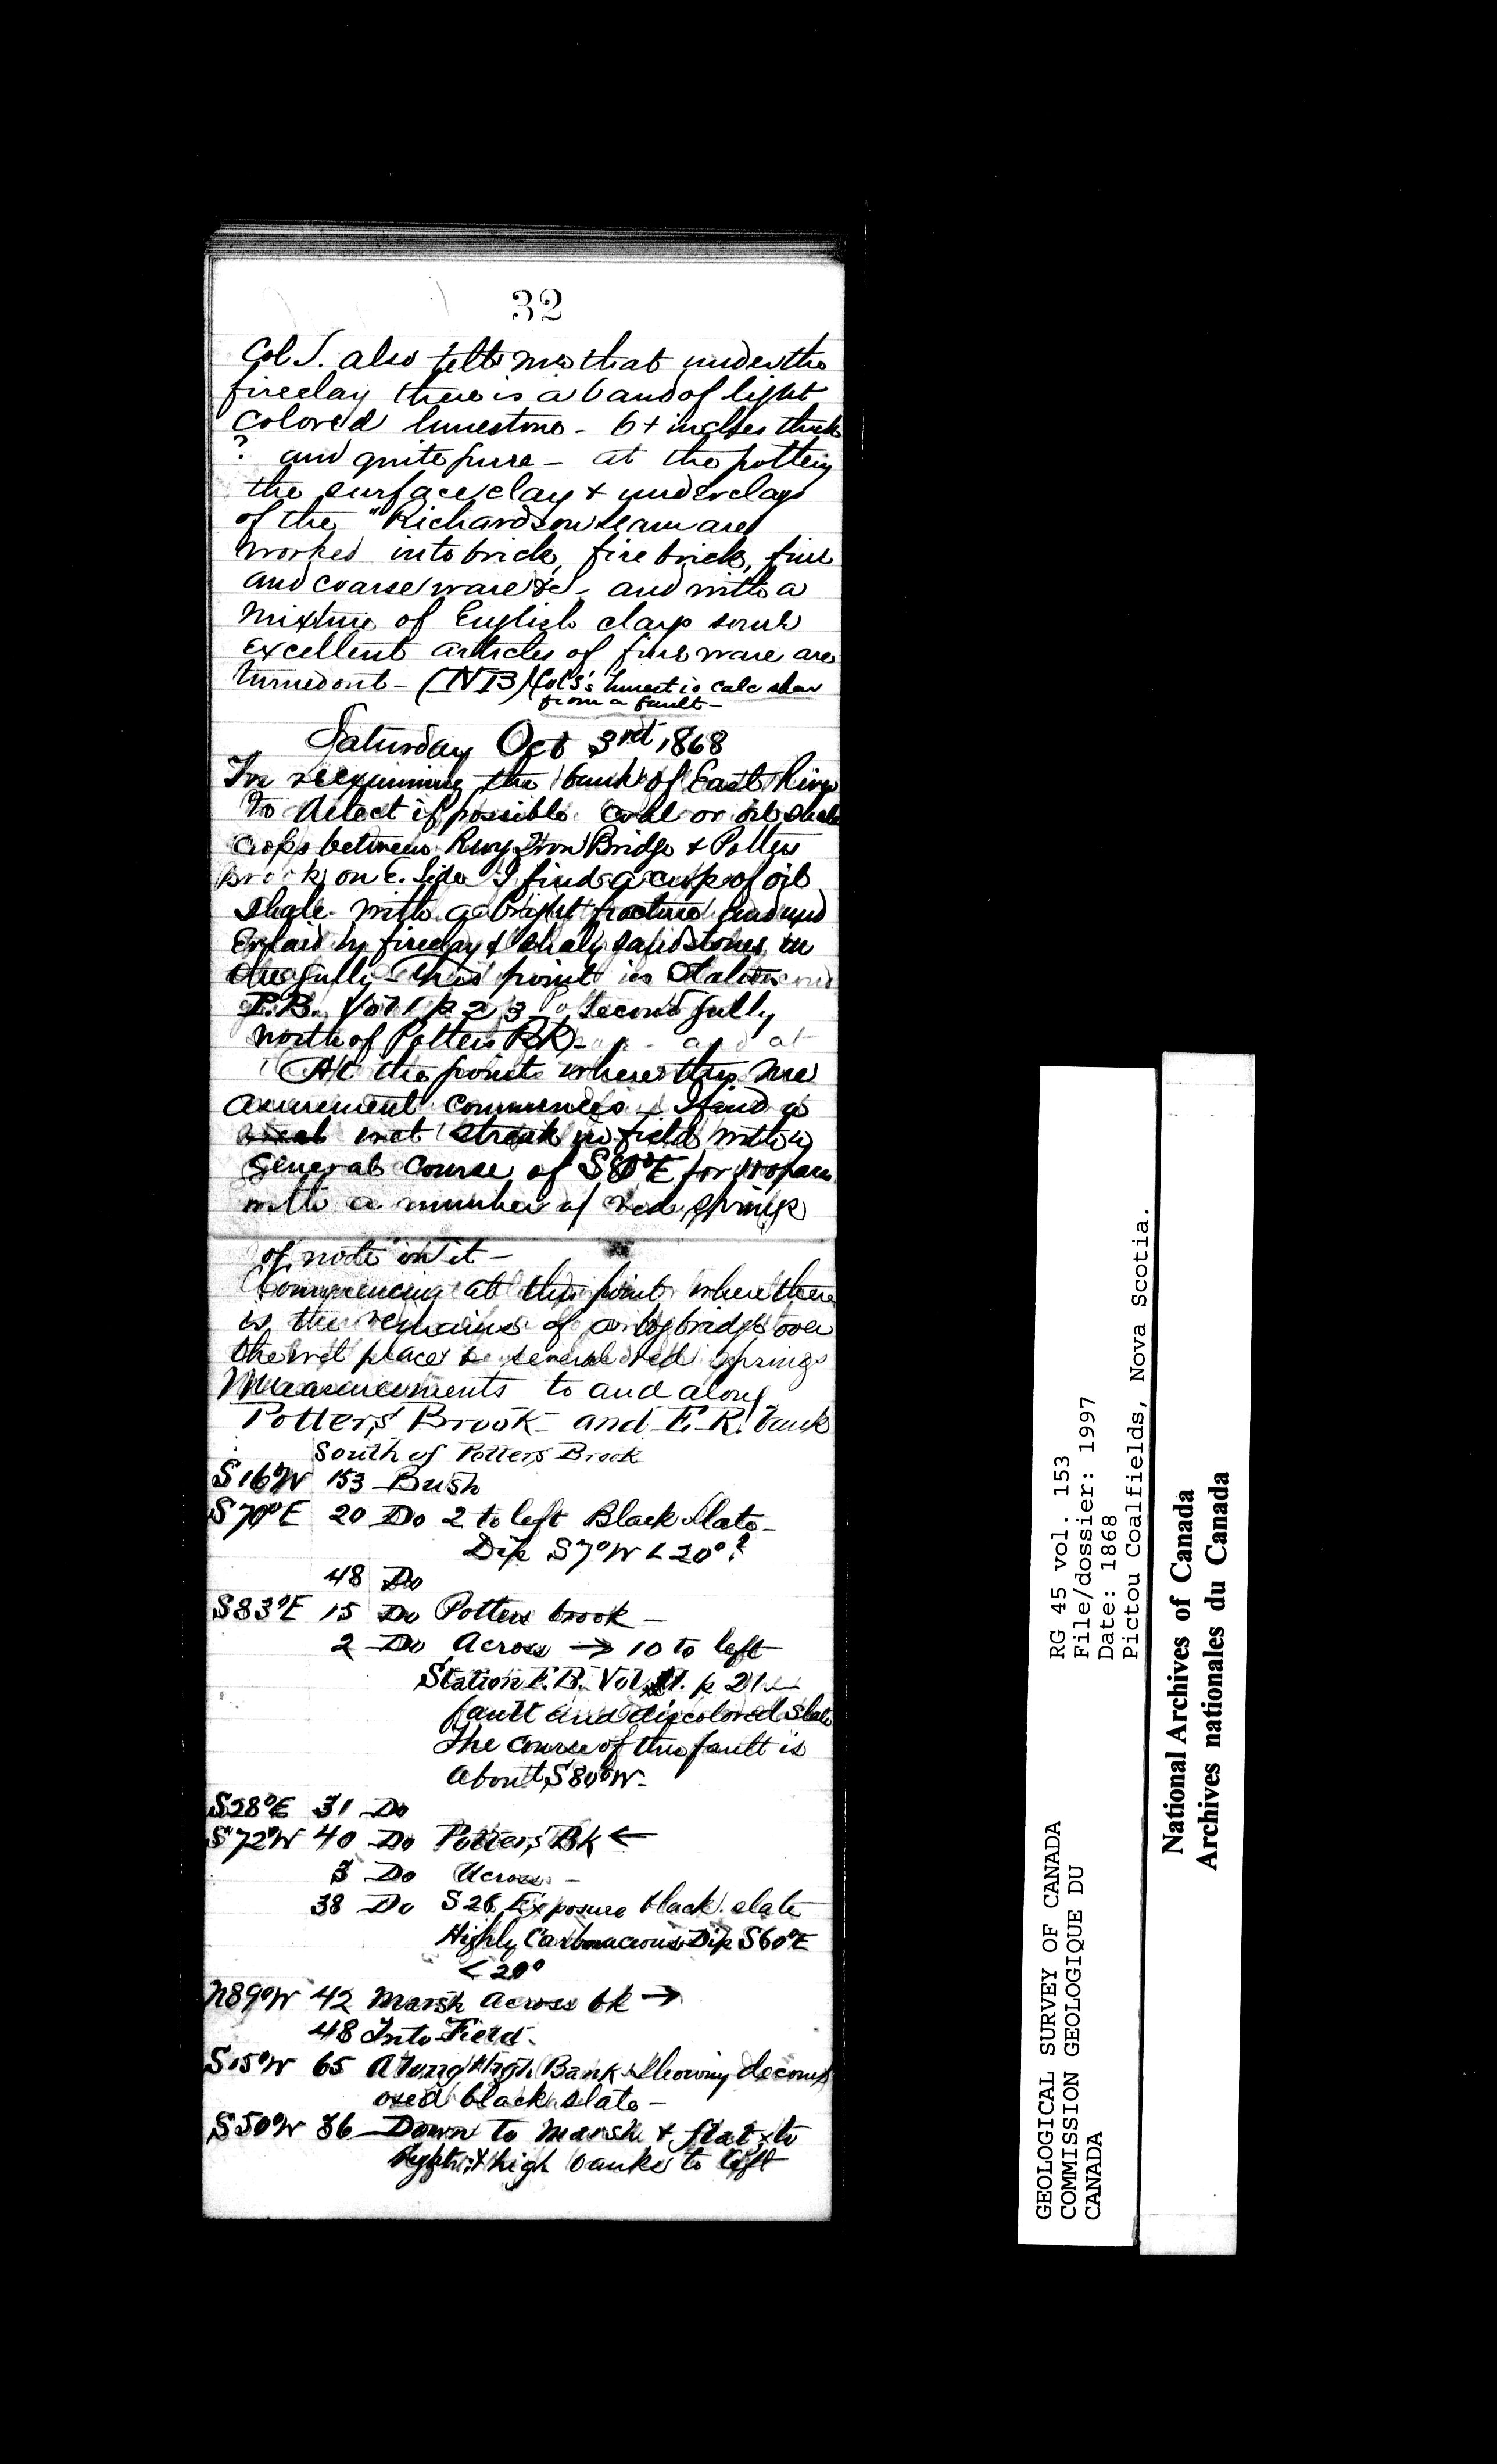 32
Col S. also tells me that under the
fireclay there is a band of light
colored limestone - 6+ inches thick
? and quite pure - at the pottery
the surface clay & underclays
of the "Richardson seam are
worked into brick, fire brick, fine
and coarse ware &c - and with a
mixture of English clays some
excellent articles of fine ware are
turned out - (NB) Col S's limest is calc spar
from a fault -
Saturday Oct 3rd 1868
In reexamining the bank of East River
to detect if possible coal or oil shale
crops between Rwy Iron Bridge & Potters
Brook on E. Side I find a crop of oil
shale with a bright fracture and
by fireclay & shaly sandstones in
the gully - This point is Station
F.B. Vol 1 p 23 second gully
north of Potters BK -
At the point where this me
asurement commences I find a
wet streak in field with a
general course of S80°E for paces
with a number of red springs
of note on it -
Commencing at this point where there
is the remains of a log bridge over
the wet place & several red springs
Measurements to and along
Potters' Brook - and E. R. bank
South of Potters Brook
S16°W 153 Bush
S70°E 20 Do 2 to left Black slate -
Dip S7°W < 20° ?
48 Do
S83°E 15 Do Potters brook -
2 Do Across → 10 to left
Station F.B. Vol 1. p 21
fault and discolored slate
The course of the fault is
about S80°W -
S28°E 31 Do
S72°W 40 Do Potters' Bk ←
3 Do Across -
38 Do S26 Exposure black slate
Highly Carbonaceous Dip S60°E
< 20°
N89°W 42 Marsh Across bk →
48 Into Field -
S15°W 65 Along High Bank showing decomp
osed black slate -
S50°W 36 Down to marsh & flat to
right & high banks to left
GEOLOGICAL SURVEY OF CANADA
COMMISSION GEOLOGIQUE DU
CANADA
RG 45 vol. 153
File/dossier: 1997
Date: 1868
Pictou Coalfields, Nova Scotia.
National Archives of Canada
Archives nationales du Canada